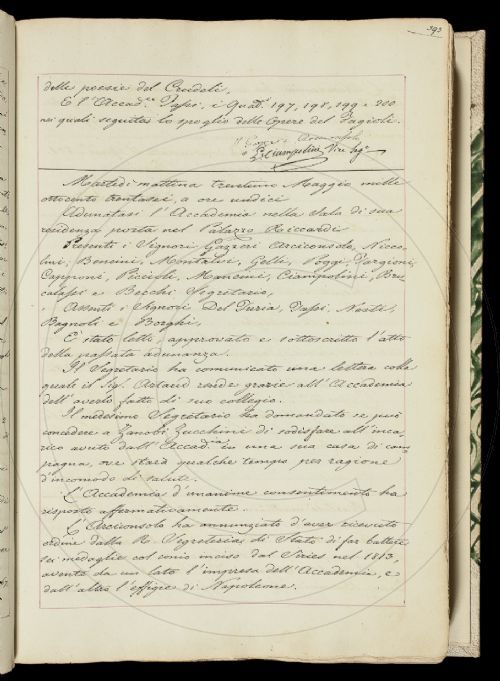 393
delle poesie del Crudeli,
E l'Accad.co Tassi, i Quad.i 197, 198, 199 e 200
nei quali seguita lo spoglio delle Opere del Fagioli.
Ciampolini Vice Seg.o
Martedì mattina trentuno Maggio mille
ottocento trentasei, a ore undici
Adunatasi l'Accademia nella Sala di sua
residenza posta nel Palazzo Riccardi
Presenti i Signori Gazzeri Arciconsolo, Nicco-
lini, Bencini, Montalvi, Gelli, Poggi, Targioni,
Capponi, Picciole, Mancini, Ciampolini, Bru
calassi e Becchi Segretario,
Assenti i Signori Del Furia, Tassi, Nesti,
Bagnoli e Borghi,
È stato letto, approvato e sottoscritto l'atto
della passata adunanza.
Il Segretario ha comunicato una lettera colla
quale il Sig. Artaud rende grazie all'Accademia
dell'averlo fatto di suo collegio.
Il medesimo Segretario ha domandato se può
concedere a Zanobi Zucchini di sodisfare all'inca-
rico avuto dall'Accad.ia in una sua casa di cam
pagna, ove starà qualche tempo per ragione
d'incomodo di salute.
L'Accademia d'unanime consentimento ha
risposto affermativamente.
L'Arciconsolo ha annunziato d'aver ricevuto
ordine dalla R. Segreteria di Stato di far battere
sei medaglie col conio inciso dal Siries nel 1813,
avente da un lato l'impresa dell'Accademia, e
dall'altro l'effigie di Napoleone.